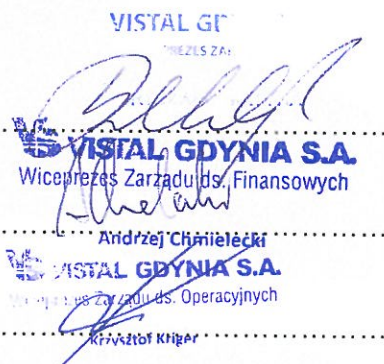 VISTAL
VISTAL GDYNIA S.A.
Wiceprezes Zarządu ds. Finansowych
Andrzej Chmielecki
VISTAL GDYNIA S.A.
Wiceprezes Zarządu ds. Operacyjnych
Krzysztof Kriger